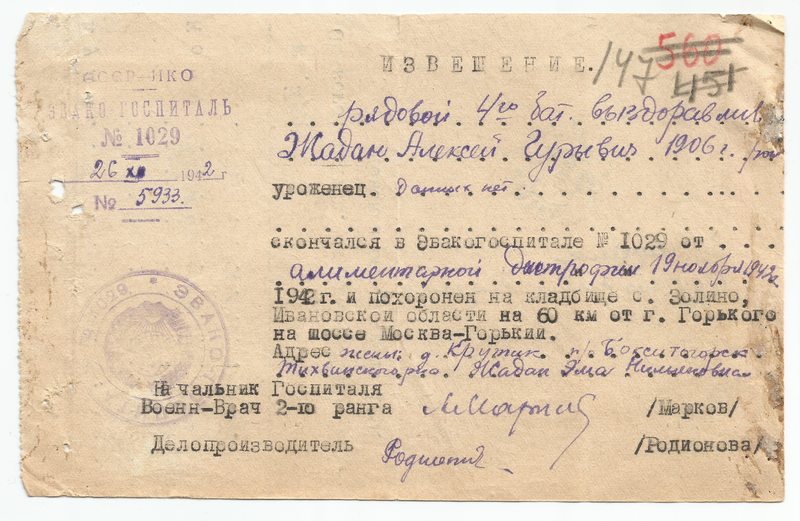 147
560
451
ИЗВЕЩЕНИЕ.
СССР-НКО
ЭВАКО-ГОСПИТАЛЬ
№ 1029
26 XII 1942 г
№ 5933.
рядовой 4го бат. выздоравлив
Жадан Алексей Гурьевич 1906 г.
уроженец. Данных нет.
скончался в Эвакогоспитале № 1029 от
алиментарной дистрофии 19 ноября 1942г
1942 г. и похоронен на кладбище с. Золино,
Ивановской области на 60 км от г. Горького
на шоссе Москва-Горький.
Адрес жены д. Крутик п/о Бокситогорск
Тихвинского р-на. Жадан Эма
Начальник Госпиталя
Военн-Врач 2-го ранга /Марков/
Делопроизводитель Родионова /Родионова/